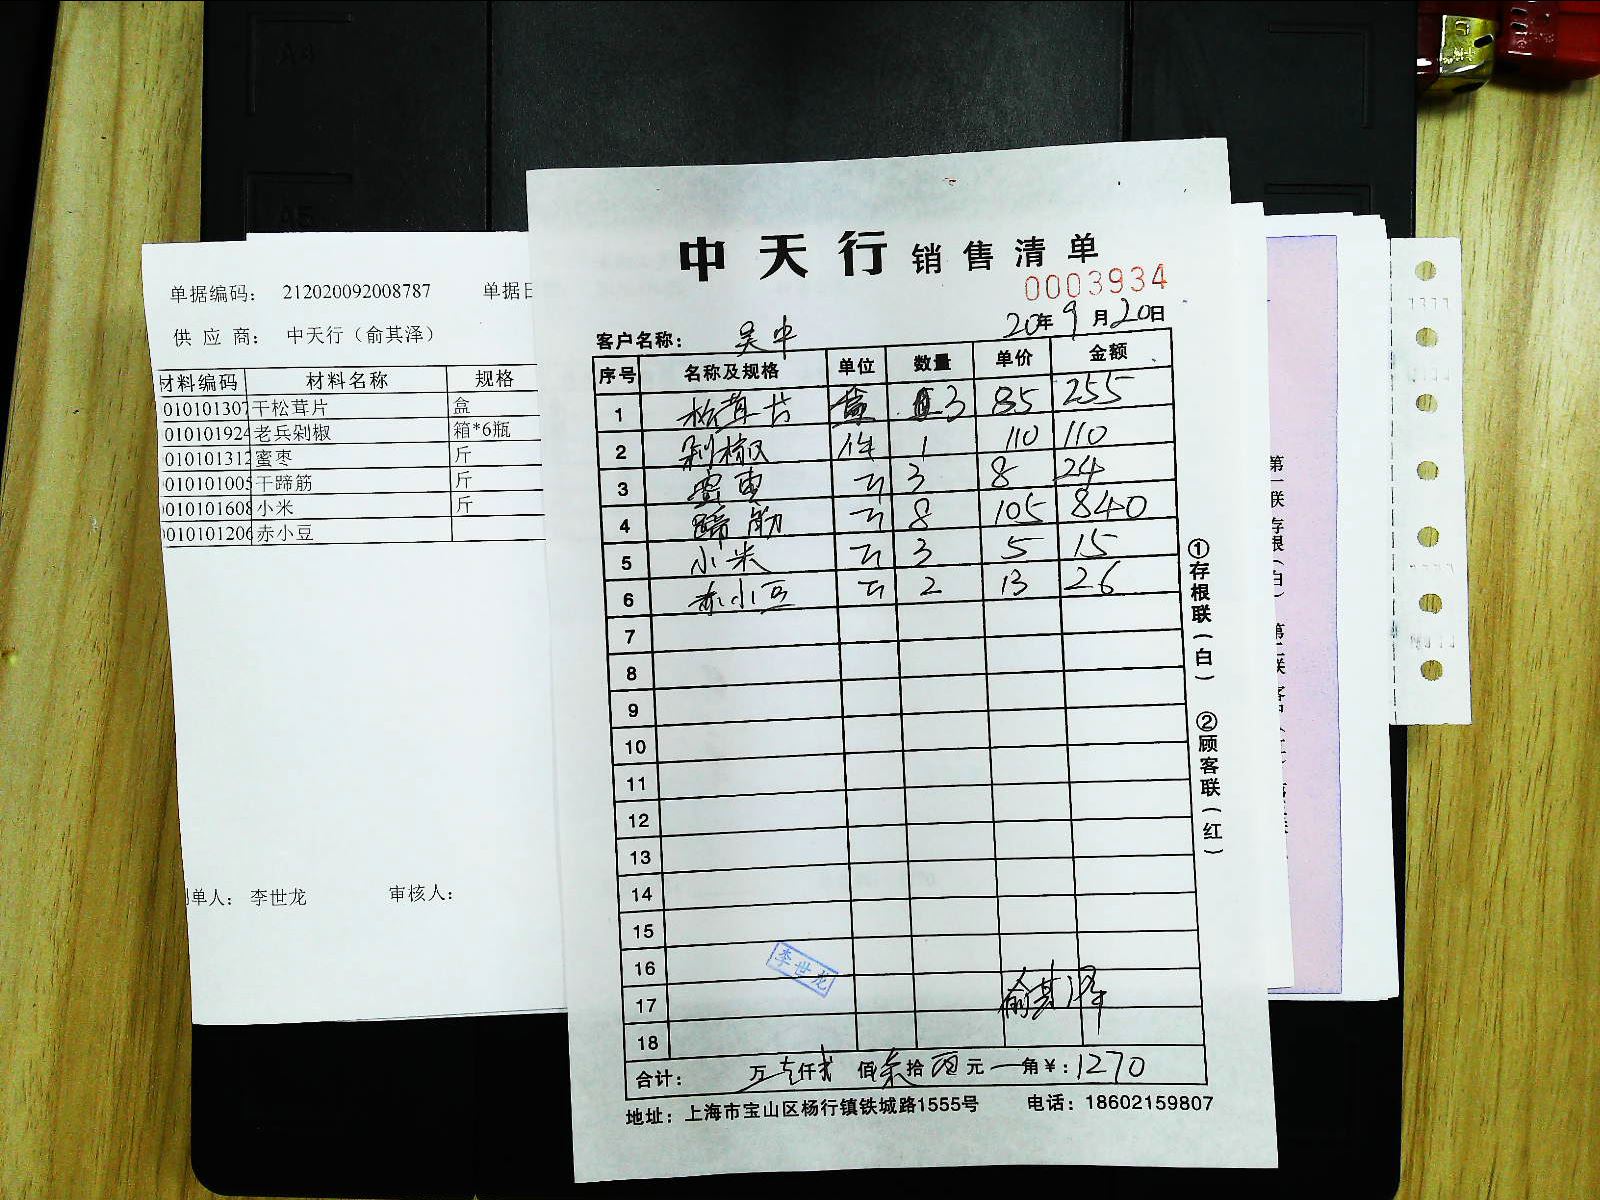 单据编码： 212020092008787 单据日
供 应 商： 中天行（俞其泽）
材料编码 材料名称 规格
010101307 干松茸片 盒
010101924 老兵剁椒 箱*6瓶
010101312 蜜枣 斤
010101005 干蹄筋 斤
010101608 小米 斤
010101206 赤小豆
制单人： 李世龙 审核人：
中天行 销售清单
0003934
客户名称： 吴中 20年9月20日
序号 名称及规格 单位 数量 单价 金额
1 松茸片 盒 3 85 255
2 剁椒 件 1 110 110
3 蜜枣 斤 3 8 24
4 蹄筋 斤 8 105 840
5 小米 斤 3 5 15
6 赤小豆 斤 2 13 26
7
8
9
10
11
12
13
14
15
16 李世龙
17 俞其泽
18
合计： 万 仟 佰 拾 元 角 ¥：1270
地址：上海市宝山区杨行镇铁城路1555号 电话：18602159807
①存根联（白） ②顾客联（红）
第一联 存根（白） 第二联 客户
A4
A5